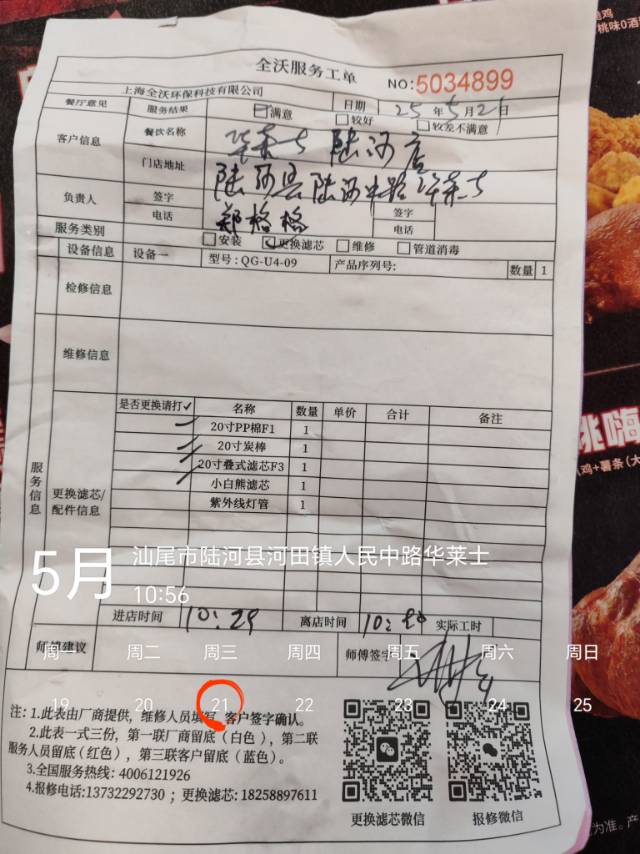 全沃服务工单
NO:5034899
上海全沃环保科技有限公司
日期 25年5月21日
餐厅意见 服务结果 满意 较好 较差不满意
客户信息 餐饮名称 华莱士 陆河店
门店地址 陆河县陆河中路华莱士
负责人 签字 郑格格 签字
电话 电话
服务类别 安装 更换滤芯 维修 管道消毒
设备信息 设备一 型号:QG-U4-09 产品序列号: 数量 1
检修信息
维修信息
服务信息
更换滤芯/配件信息
是否更换请打✓ 名称 数量 单价 合计 备注
✓ 20寸PP棉F1 1
✓ 20寸炭棒 1
✓ 20寸叠式滤芯F3 1
小白熊滤芯 1
紫外线灯管 1
5月 汕尾市陆河县河田镇人民中路华莱士
10:56
进店时间 10:29 离店时间 实际工时
师傅建议 师傅签字
周一 周二 周三 周四 周五 周六 周日
19 20 21 22 23 24 25
注:1.此表由厂商提供,维修人员填写,客户签字确认。
2.此表一式三份,第一联厂商留底(白色),第二联
服务人员留底(红色),第三联客户留底(蓝色)。
3.全国服务热线:4006121926
4.报修电话:13732292730;更换滤芯:18258897611
更换滤芯微信 报修微信
桃味0酒
桃嗨
鸡+薯条(大
为准。产